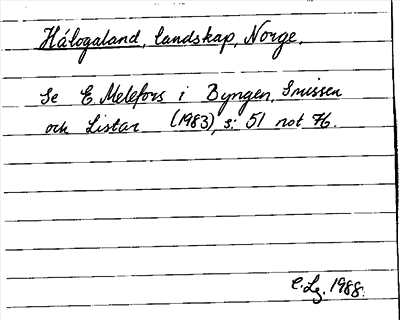 Hálogaland, landskap, Norge.
Se E. Melefors i Byngen, Snissen
och Listar (1983), s: 51 not 76.
C. Lg. 1988.